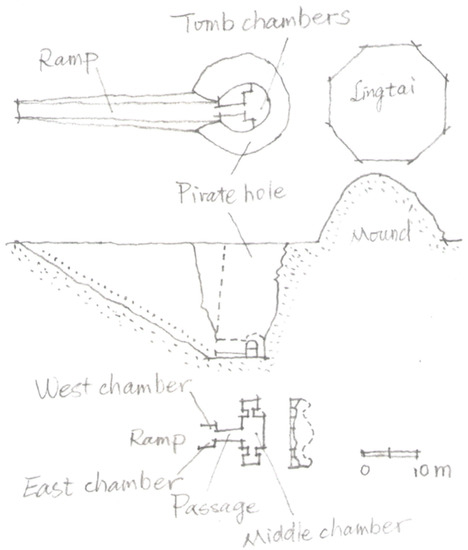 Tomb chambers
Ramp
Lingtai
Pirate hole
Mound
West chamber
Ramp
East chamber
Passage
Middle chamber
0 10 m